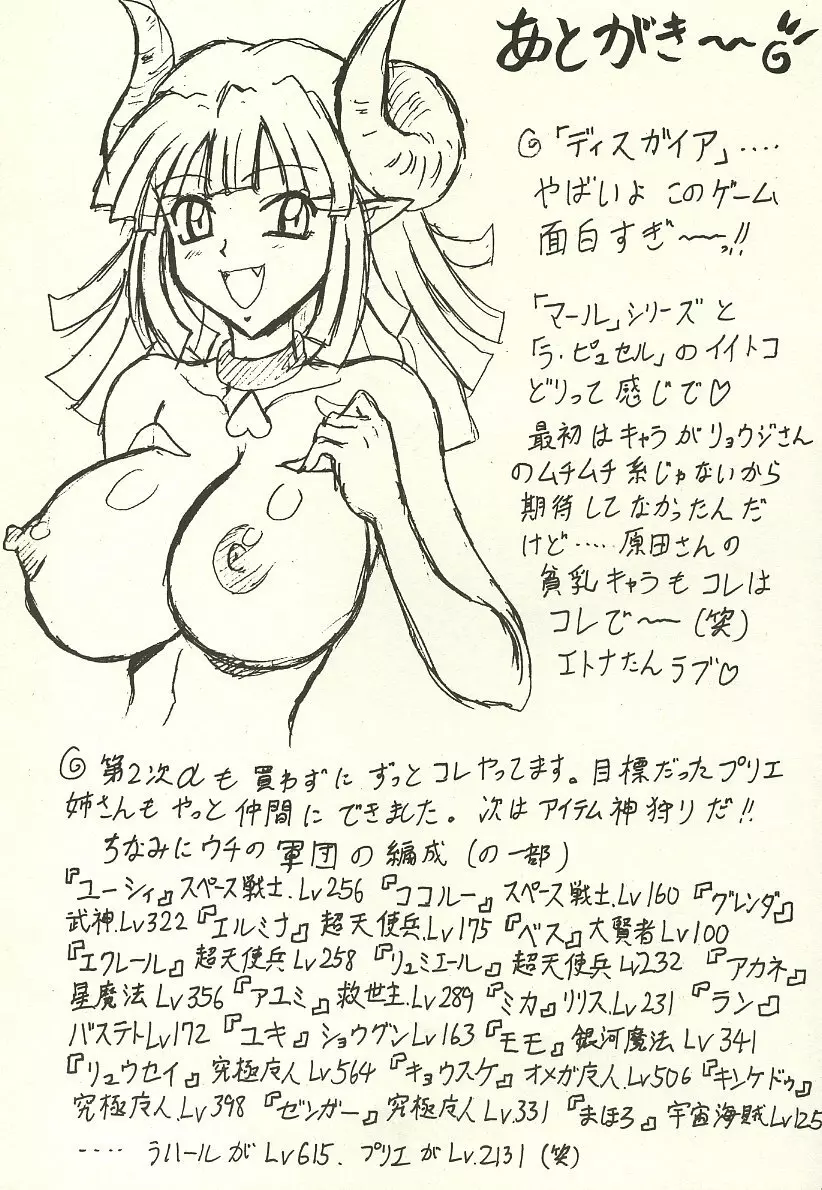 あとがき〜
「ディスガイア」‥‥
やばいよ このゲーム
面白すぎ〜〜っ!!
「マール」シリーズと
「ラ・ピュセル」のイイトコ
どりって感じで♡
最初はキャラがリョウジさん
のムチムチ系じゃないから
期待してなかったんだ
けど‥‥原田さんの
貧乳キャラもコレは
コレで〜(笑)
エトナたんラブ♡
第2次αも買わずにずっとコレやってます。目標だったプリエ
姉さんもやっと仲間にできました。次はアイテム神狩りだ!!
ちなみにウチの軍団の編成(の一部)
『ユーシィ』スペース戦士.Lv256 『ココルー』スペース戦士.Lv160 『グレンダ』
武神.Lv322 『エルミナ』超天使兵.Lv175 『ベス』大賢者Lv100
『エクレール』超天使兵Lv258 『リュミエール』超天使兵Lv232 『アカネ』
星魔法Lv356 『アユミ』救世主.Lv289 『ミカ』リリス.Lv231 『ラン』
バステトLv172 『ユキ』ショウグンLv163 『モモ』銀河魔法Lv341
『リュウセイ』究極魔人Lv564 『キョウスケ』オメガ魔人.Lv506 『キンケドゥ』
究極魔人.Lv398 『ゼンガー』究極魔人.Lv331 『まほろ』宇宙海賊Lv125
‥‥ラハールがLv615、プリエがLv.2131(笑)